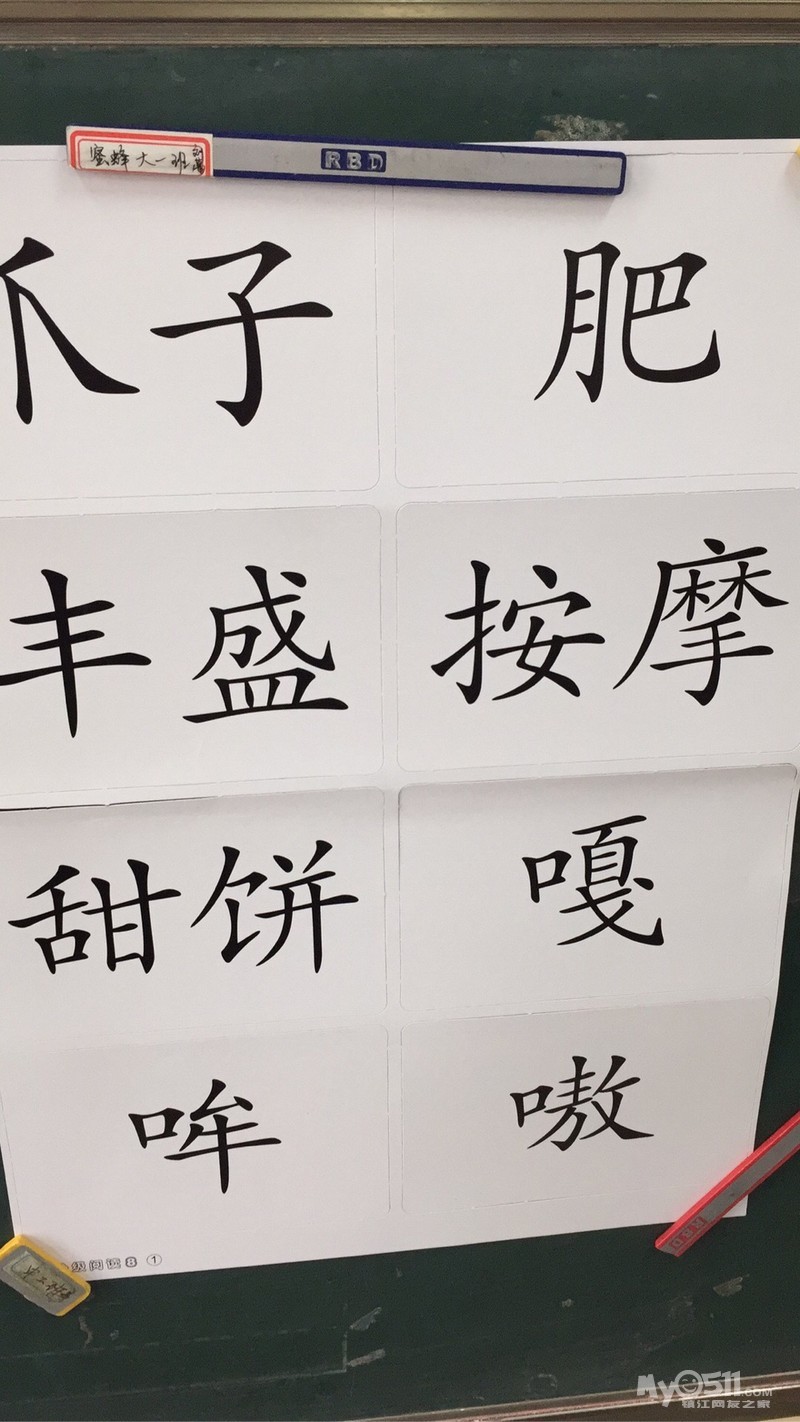 蜜蜂大一班
RBD
爪子 肥
丰盛 按摩
甜饼 嘎
哞 嗷
级阅读8 ①
RBD
My0511.COM
镇江网友之家